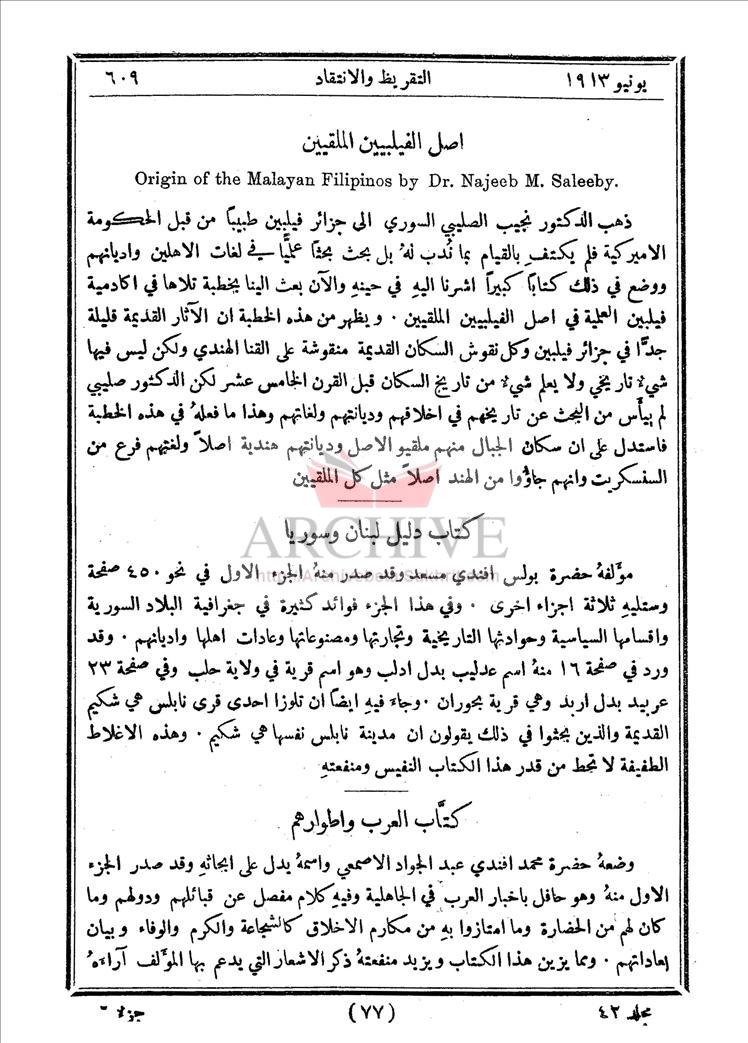 يونيو ١٩١٣ التقريظ والانتقاد ٦٠٩
اصل الفيلبيين الملقيين
Origin of the Malayan Filipinos by Dr. Najeeb M. Saleeby.
ذهب الدكتور نجيب الصليبي السوري الى جزائر فيلبين طبيباً من قبل الحكومة
الاميركية فلم يكتفِ بالقيام بما نُدب لهُ بل بحث بحثاً عمليًّا في لغات الاهلين واديانهم
ووضع في ذلك كتاباً كبيراً اشرنا اليهِ في حينهِ والآن بعث الينا بخطبة تلاها في اكادمية
فيلبين العلمية في اصل الفيلبيين الملقيين . ويظهر من هذه الخطبة ان الآثار القديمة قليلة
جدًّا في جزائر فيلبين وكل نقوش السكان القديمة منقوشة على القنا الهندي ولكن ليس فيها
شيءٌ تاريخي ولا يعلم شيءٌ من تاريخ السكان قبل القرن الخامس عشر لكن الدكتور صليبي
لم ييأَس من البحث عن تاريخهم في اخلاقهم وديانتهم ولغاتهم وهذا ما فعلهُ في هذه الخطبة
فاستدل على ان سكان الجبال منهم ملقيو الاصل وديانتهم هندية اصلاً ولغتهم فرع من
السنسكريت وانهم جاؤُوا من الهند اصلاً مثل كل الملقيين
ARCHIVE
كتاب دليل لبنان وسوريا
مؤَلفهُ حضرة بولس افندي مسعد وقد صدر منهُ الجزء الاول في نحو ٤٥٠ صفحة
وستليهِ ثلاثة اجزاء اخرى . وفي هذا الجزء فوائد كثيرة في جغرافية البلاد السورية
واقسامها السياسية وحوادثها التاريخية وتجارتها ومصنوعاتها وعادات اهلها واديانهم . وقد
ورد في صفحة ١٦ منهُ اسم عدليب بدل ادلب وهو اسم قرية في ولاية حلب وفي صفحة ٢٣
عربيد بدل اربد وهي قرية بحوران . وجاءَ فيهِ ايضاً ان تلوزا احدى قرى نابلس هي شكيم
القديمة والذين بحثوا في ذلك يقولون ان مدينة نابلس نفسها هي شكيم . وهذه الاغلاط
الطفيفة لا تحط من قدر هذا الكتاب النفيس ومنفعتهِ
كتَّاب العرب واطوارهم
وضعهُ حضرة محمد افندي عبد الجواد الاصمعي واسمهُ يدل على ابحاثهِ وقد صدر الجزء
الاول منهُ وهو حافل باخبار العرب في الجاهلية وفيهِ كلام مفصل عن قبائلهم ودولهم وما
كان لهم من الحضارة وما امتازوا بهِ من مكارم الاخلاق كالشجاعة والكرم والوفاء وبيان
عاداتهم . ومما يزين هذا الكتاب ويزيد منفعتهُ ذكر الاشعار التي يدعم بها المؤَلف آراءَهُ
مجلد ٤٢ (٧٧) جزء